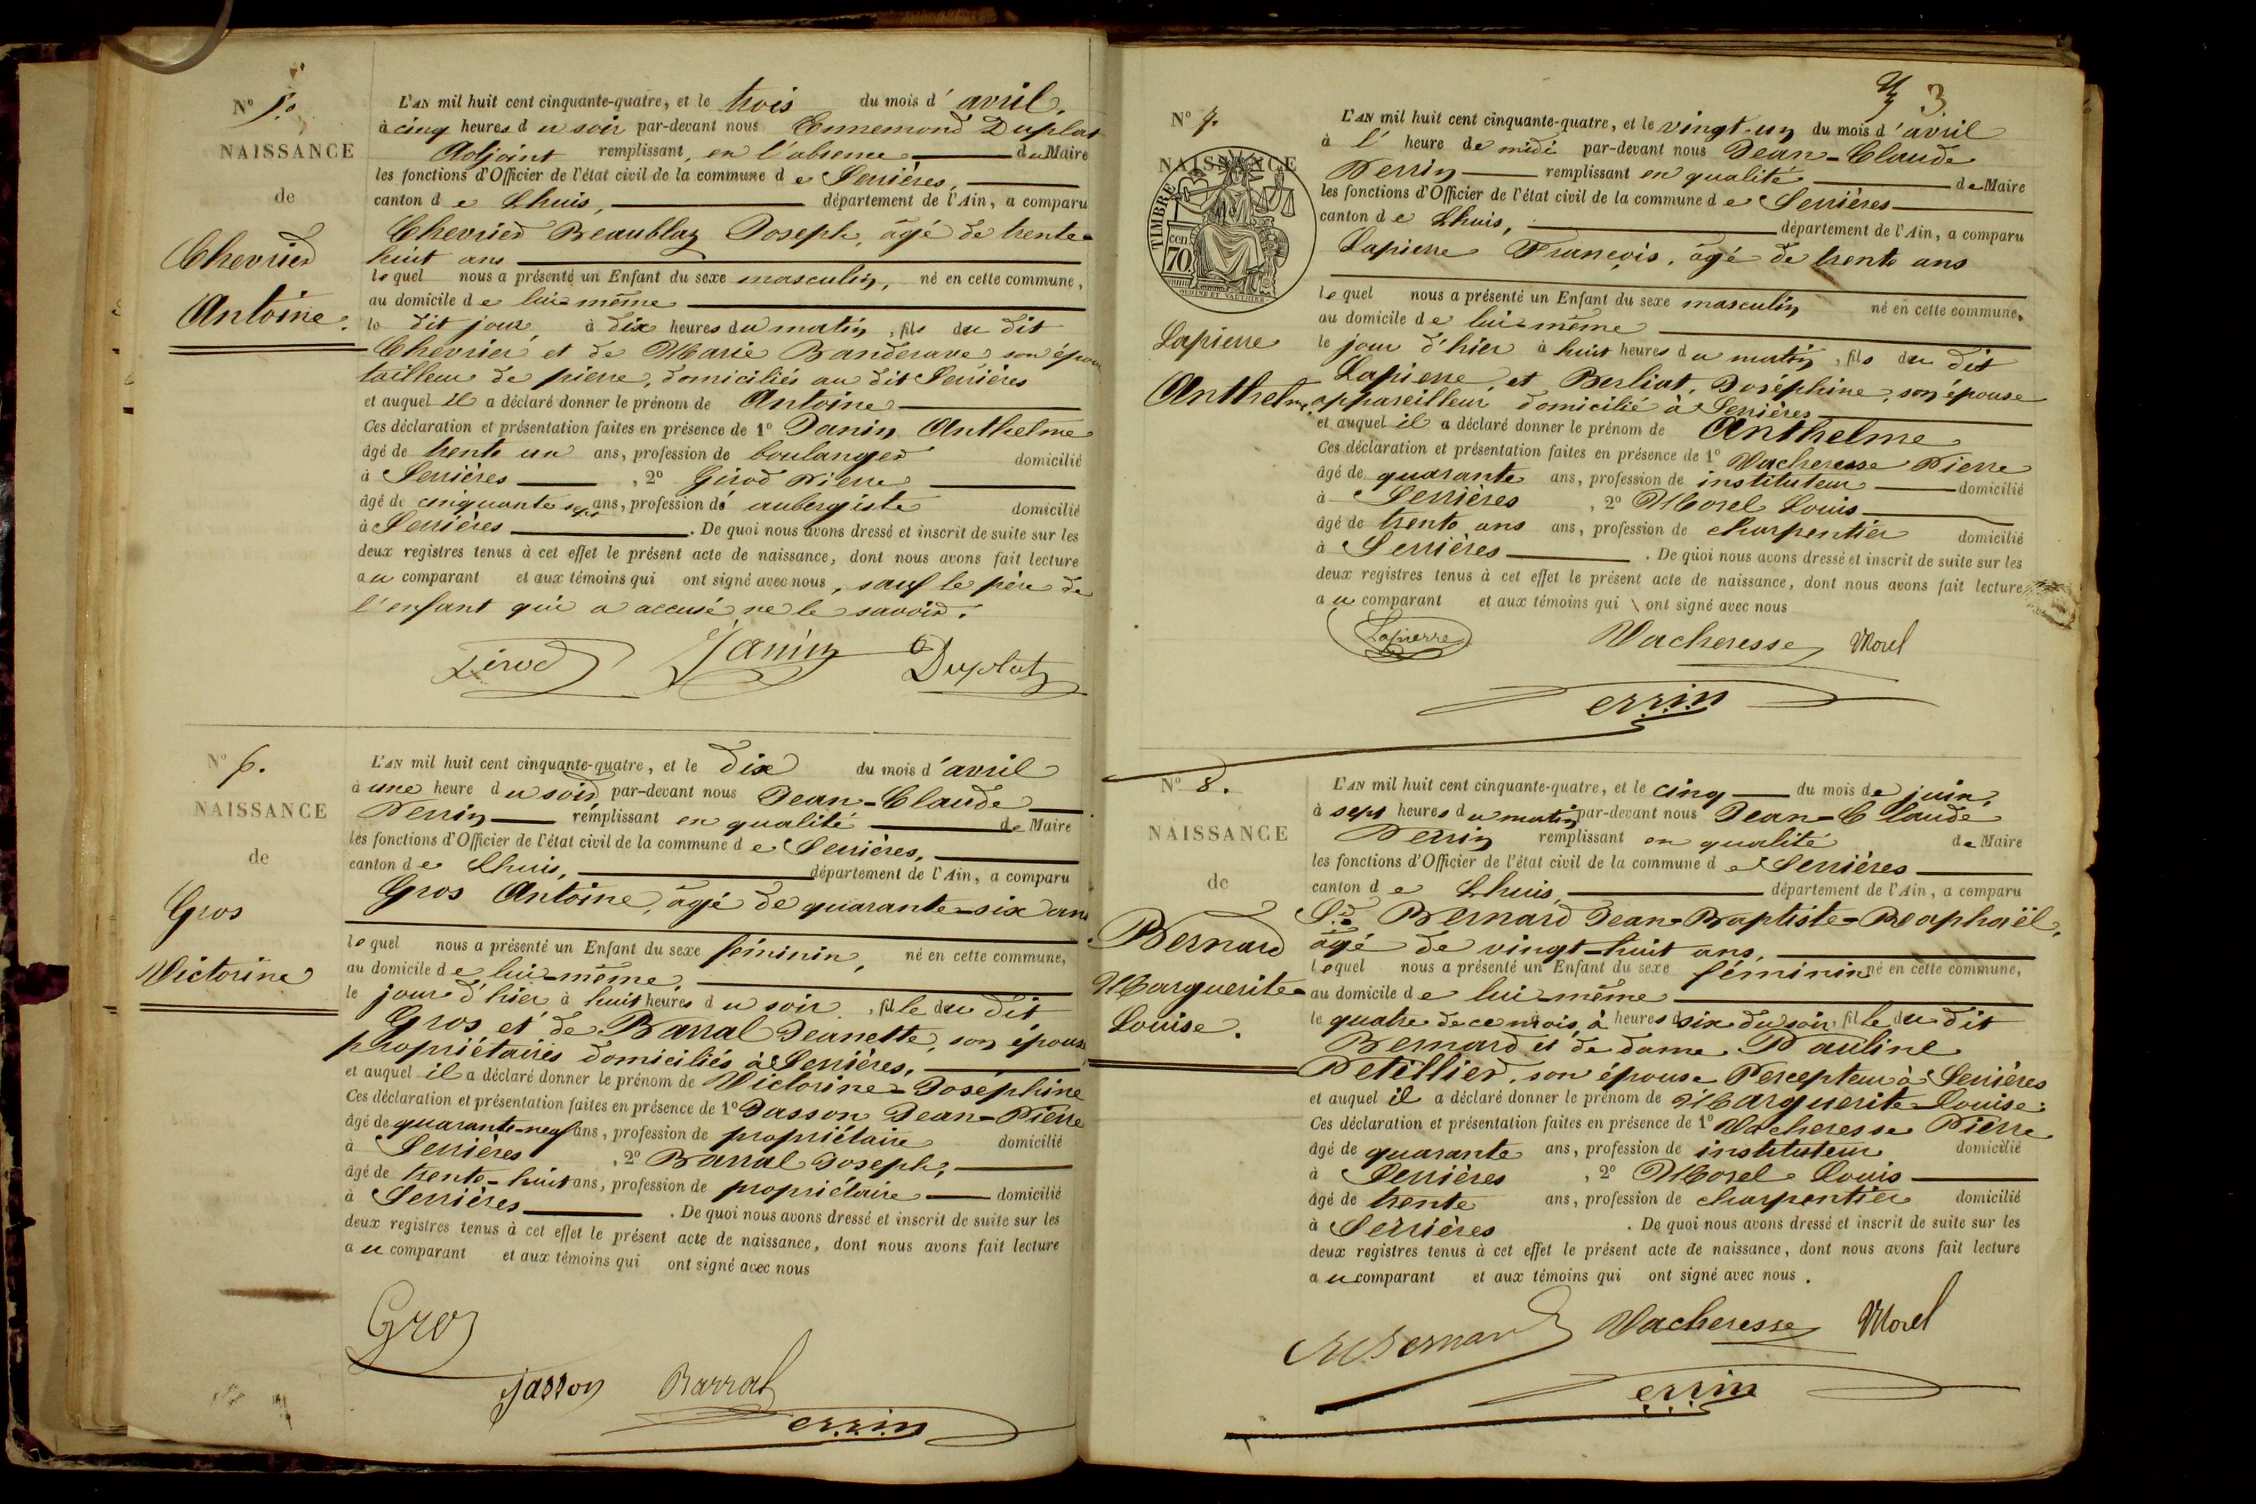 N° 5.
NAISSANCE
de
Chevrier
Antoine.
L'AN mil huit cent cinquante-quatre, et le trois du mois d' avril,
à cinq heures du soir par-devant nous Ennemond Duplat
Adjoint remplissant, en l'absence du Maire
les fonctions d'Officier de l'état civil de la commune de Serrières,
canton de Lhuis, département de l'Ain, a comparu
Chevrier Beaublaz Joseph, âgé de trente-
huit ans
lequel nous a présenté un Enfant du sexe masculin, né en cette commune,
au domicile de lui-même
le dit jour à dix heures du matin, fils du dit
Chevrier et de Marie son épouse
tailleur de pierre, domiciliés au dit Serrières
et auquel il a déclaré donner le prénom de Antoine
Ces déclaration et présentation faites en présence de 1° Janin Anthelme
âgé de trente un ans, profession de boulanger domicilié
à Serrières, 2° Girod Pierre
âgé de cinquante sept ans, profession de aubergiste domicilié
à Serrières. De quoi nous avons dressé et inscrit de suite sur les
deux registres tenus à cet effet le présent acte de naissance, dont nous avons fait lecture
au comparant et aux témoins qui ont signé avec nous, sauf le père de
l'enfant qui a accusé ne le savoir.
Girod Janin Duplat
N° 6.
NAISSANCE
de
Gros
Victorine
L'AN mil huit cent cinquante-quatre, et le dix du mois d'avril
à une heure du soir par-devant nous Jean-Claude
Perrin remplissant en qualité de Maire
les fonctions d'Officier de l'état civil de la commune de Serrières,
canton de Lhuis, département de l'Ain, a comparu
Gros Antoine, âgé de quarante-six ans
lequel nous a présenté un Enfant du sexe féminin, né en cette commune,
au domicile de lui-même,
le jour d'hier à huit heures du soir, fille du dit
Gros et de Barral Jeanette, son épouse
propriétaires domiciliés à Serrières,
et auquel il a déclaré donner le prénom de Victorine-Joséphine
Ces déclaration et présentation faites en présence de 1° Jasson Jean-Pierre
âgé de quarante-neuf ans, profession de propriétaire domicilié
à Serrières, 2° Barral Joseph,
âgé de trente-huit ans, profession de propriétaire domicilié
à Serrières. De quoi nous avons dressé et inscrit de suite sur les
deux registres tenus à cet effet le présent acte de naissance, dont nous avons fait lecture
au comparant et aux témoins qui ont signé avec nous
Gros
Jasson Barral
Perrin
3
N° 7.
NAISSANCE
TIMBRE
cen
70
OUDINÉ ET VAUTHIER
Lapierre
Anthelme
L'AN mil huit cent cinquante-quatre, et le vingt-un du mois d'avril
à l' heure de midi par-devant nous Jean-Claude
Perrin remplissant en qualité de Maire
les fonctions d'Officier de l'état civil de la commune de Serrières
canton de Lhuis, département de l'Ain, a comparu
Lapierre François, âgé de trente ans
lequel nous a présenté un Enfant du sexe masculin né en cette commune,
au domicile de lui-même
le jour d'hier à huit heures du matin, fils du dit
Lapierre, et Berliat, Joséphine, son épouse
appareilleur domicilié à Serrières
et auquel il a déclaré donner le prénom de Anthelme
Ces déclaration et présentation faites en présence de 1° Vacheresse Pierre
âgé de quarante ans, profession de instituteur domicilié
à Serrières, 2° Morel Louis
âgé de trente ans ans, profession de charpentier domicilié
à Serrières. De quoi nous avons dressé et inscrit de suite sur les
deux registres tenus à cet effet le présent acte de naissance, dont nous avons fait lecture
au comparant et aux témoins qui ont signé avec nous
Lapierre Vacheresse Morel
Perrin
N° 8.
NAISSANCE
de
Bernard
Marguerite-
Louise.
L'AN mil huit cent cinquante-quatre, et le cinq du mois de juin,
à sept heures du matin par-devant nous Jean-Claude
Perrin remplissant en qualité de Maire
les fonctions d'Officier de l'état civil de la commune de Serrières
canton de Lhuis, département de l'Ain, a comparu
Bernard Jean-Baptiste-Raphaël,
âgé de vingt-huit ans,
lequel nous a présenté un Enfant du sexe féminin né en cette commune,
au domicile de lui-même
le quatre de ce mois, à heures six du soir, fille du dit
Bernard et de dame Pauline
Petillier, son épouse Percepteur à Serrières
et auquel il a déclaré donner le prénom de Marguerite-Louise.
Ces déclaration et présentation faites en présence de 1° Vacheresse Pierre
âgé de quarante ans, profession de instituteur domicilié
à Serrières, 2° Morel Louis
âgé de trente ans, profession de charpentier domicilié
à Serrières. De quoi nous avons dressé et inscrit de suite sur les
deux registres tenus à cet effet le présent acte de naissance, dont nous avons fait lecture
au comparant et aux témoins qui ont signé avec nous.
Bernard Vacheresse Morel
Perrin